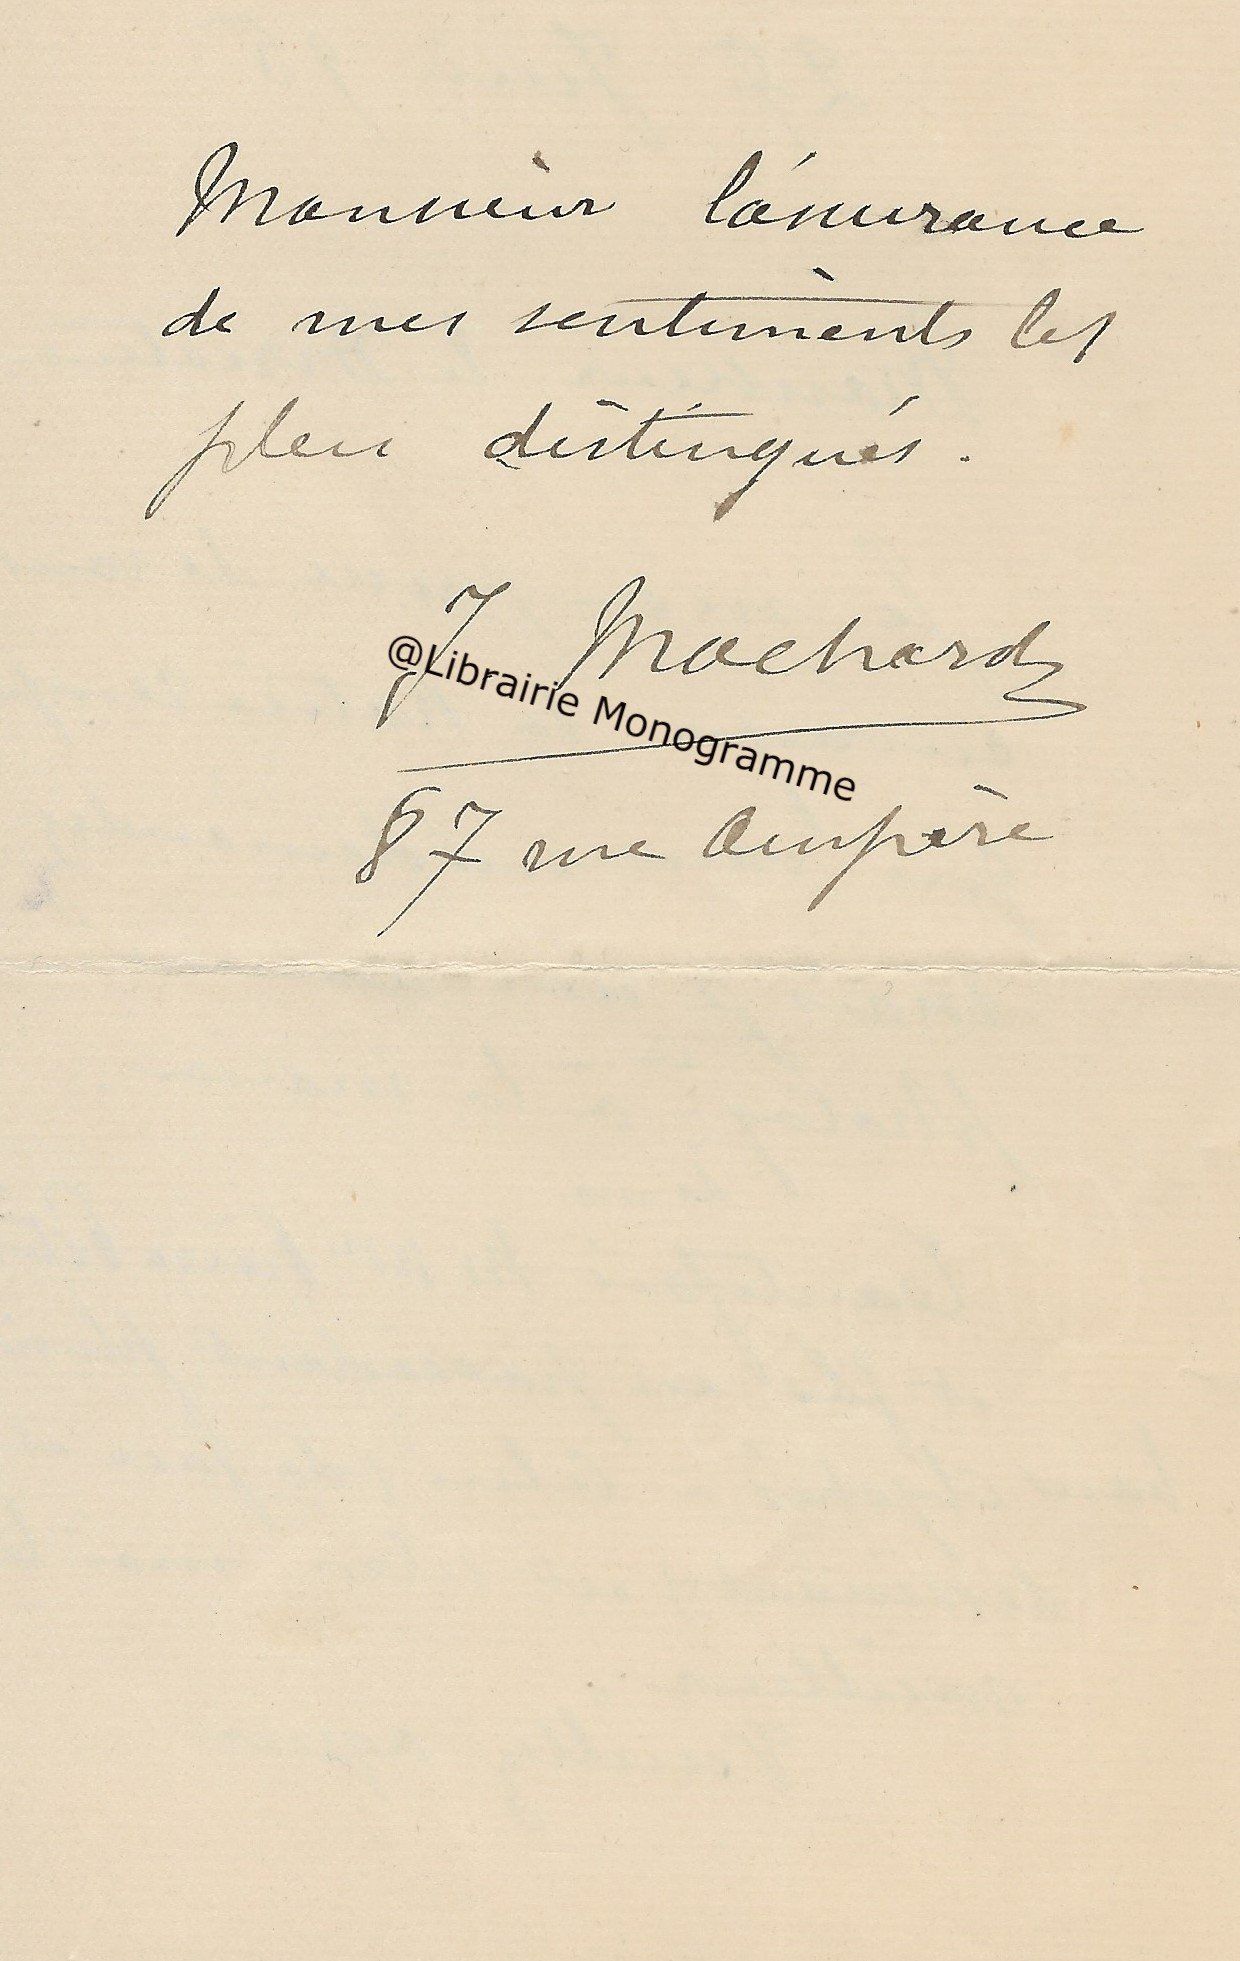 Monsieur l'assurance
de mes sentiments les
plus distingués.
J Machard
@Librairie Monogramme
87 rue Ampère